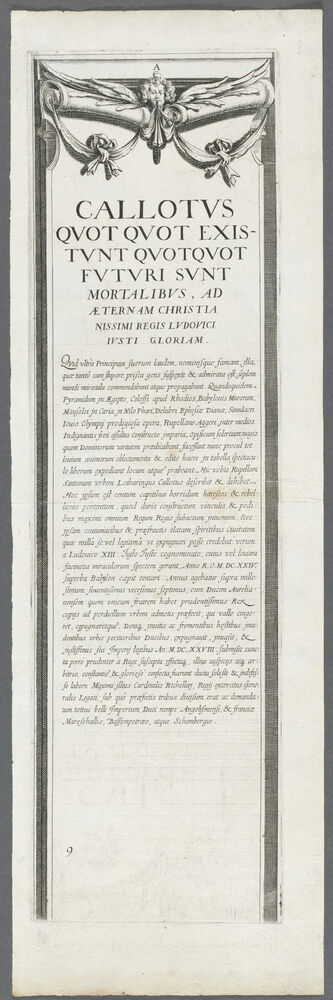 A
CALLOTVS
QVOT QVOT EXIS-
TVNT QVOTQVOT
FVTVRI SVNT
MORTALIBVS, AD
ÆTERNAM CHRISTIA
NISSIMI REGIS LVDOVICI
IVSTI GLORIAM.
Quid vltra Principum suorum laudem, nominisque famam, illa,
quæ tanto cum stupore prisca gens suspexit & admirata est, septem
mundi miracula commendabant atque propagabant. Quandoquidem,
Pyramidum in Ægypto Colossi apud Rhodios, Babylonis Murorum,
Mausolei in Caria, in Nilo Phari, Delubri Ephesiæ Dianæ, Simulacri
Iouis Olympij prodigiosa opera, Rupellano Aggeri, inter medios
Indignantis freti assultus constructo imparia, Opificum solertiam magis
quam Dominorum virtutem prædicabant, facessant nunc procul vt
leuium animorum oblectamenta & edito hacce in tabella spectacu
lo liberum expediant locum atque præbeant. Hic vobis Rupellam
Santonum vrbem Lotharingus Callotus describit & exhibet.
Hoc ipsum est centum capitibus horridum hæreseos & rebel
lionis portentum, quod duris constrictum vinculis, & pedi
bus maximi omnium Regum Regis subiectum intuemini. Ecce
ipsam contumacibus & præfractæ olim spiritibus Ciuitatem
quæ nulla se vel legitima vi expugnari posse credebat verum
a Ludouico XIII. Iusto Iuste cognominato, cuius vel leuiora
facinora miraculorum speciem gerunt, Anno R.O.M. DC.XXIV.
superba Babylon capit tentari. Annus agebatur supra mille-
simum sexcentesimus vicesimus septimus, cum Ducem Aurelia-
nensem quem vnicum fratrem habet prudentissimus Rex
copijs ad perduellium vrbem admotis præfecit, qui vallo cinge-
ret, expugnaretque. Donec, inuitis ac frementibus hostibus, inui
dentibus orbis potitoribus Ducibus, expugnauit, inuasit, &
iustissimus sui Imperij legibus An. M.DC.XXVIII. submisit. cunc-
ta porro prudenter à Rege suscepta effectaque, illius auspicijs atque ar-
bitrio, constanter & gloriose confecta fuerunt ductu solesti & indefes-
so labore Maximi illius Cardinalis Richelleij, Regij exercitus Gene-
ralis Legati, sub quo præfectis tribus diuisim erat ac demanda-
tum totius belli Imperium, Duci nempe Angolismensi, & franciæ
Mareschallis, Bassompetræo, atque Schombergio.
9